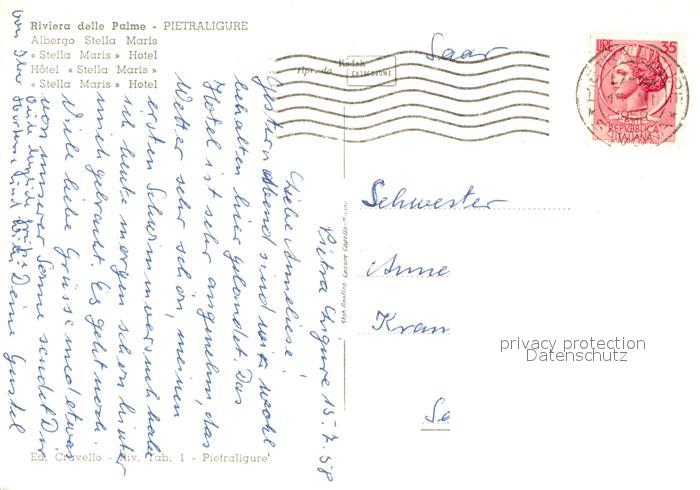 Riviera delle Palme - PIETRALIGURE
Albergo Stella Maris
« Stella Maris » Hotel
Hôtel « Stella Maris »
« Stella Maris » Hotel
riprod. da Kodak
EKTACHROME
Saar
LIRE 35
REPVBBLICA
ITALIANA
Pietra Ligure 15.7.58
Liebe Anneliese!
Gestern Abend sind wir wohl
behalten hier gelandet. Das
Hotel ist sehr angenehm, das
Wetter sehr schön, meinen
ersten Schwimmversuch habe
ich heute morgen schon hinter
mich gebracht. Es geht noch.
Viele liebe Grüsse und etwas
von unserer Sonne sendet Dir
Deine Gustel
Schwester
Anne
Kran
Se
privacy protection
Datenschutz
Ed. Cravello - Riv. Tab. 1 - Pietraligure